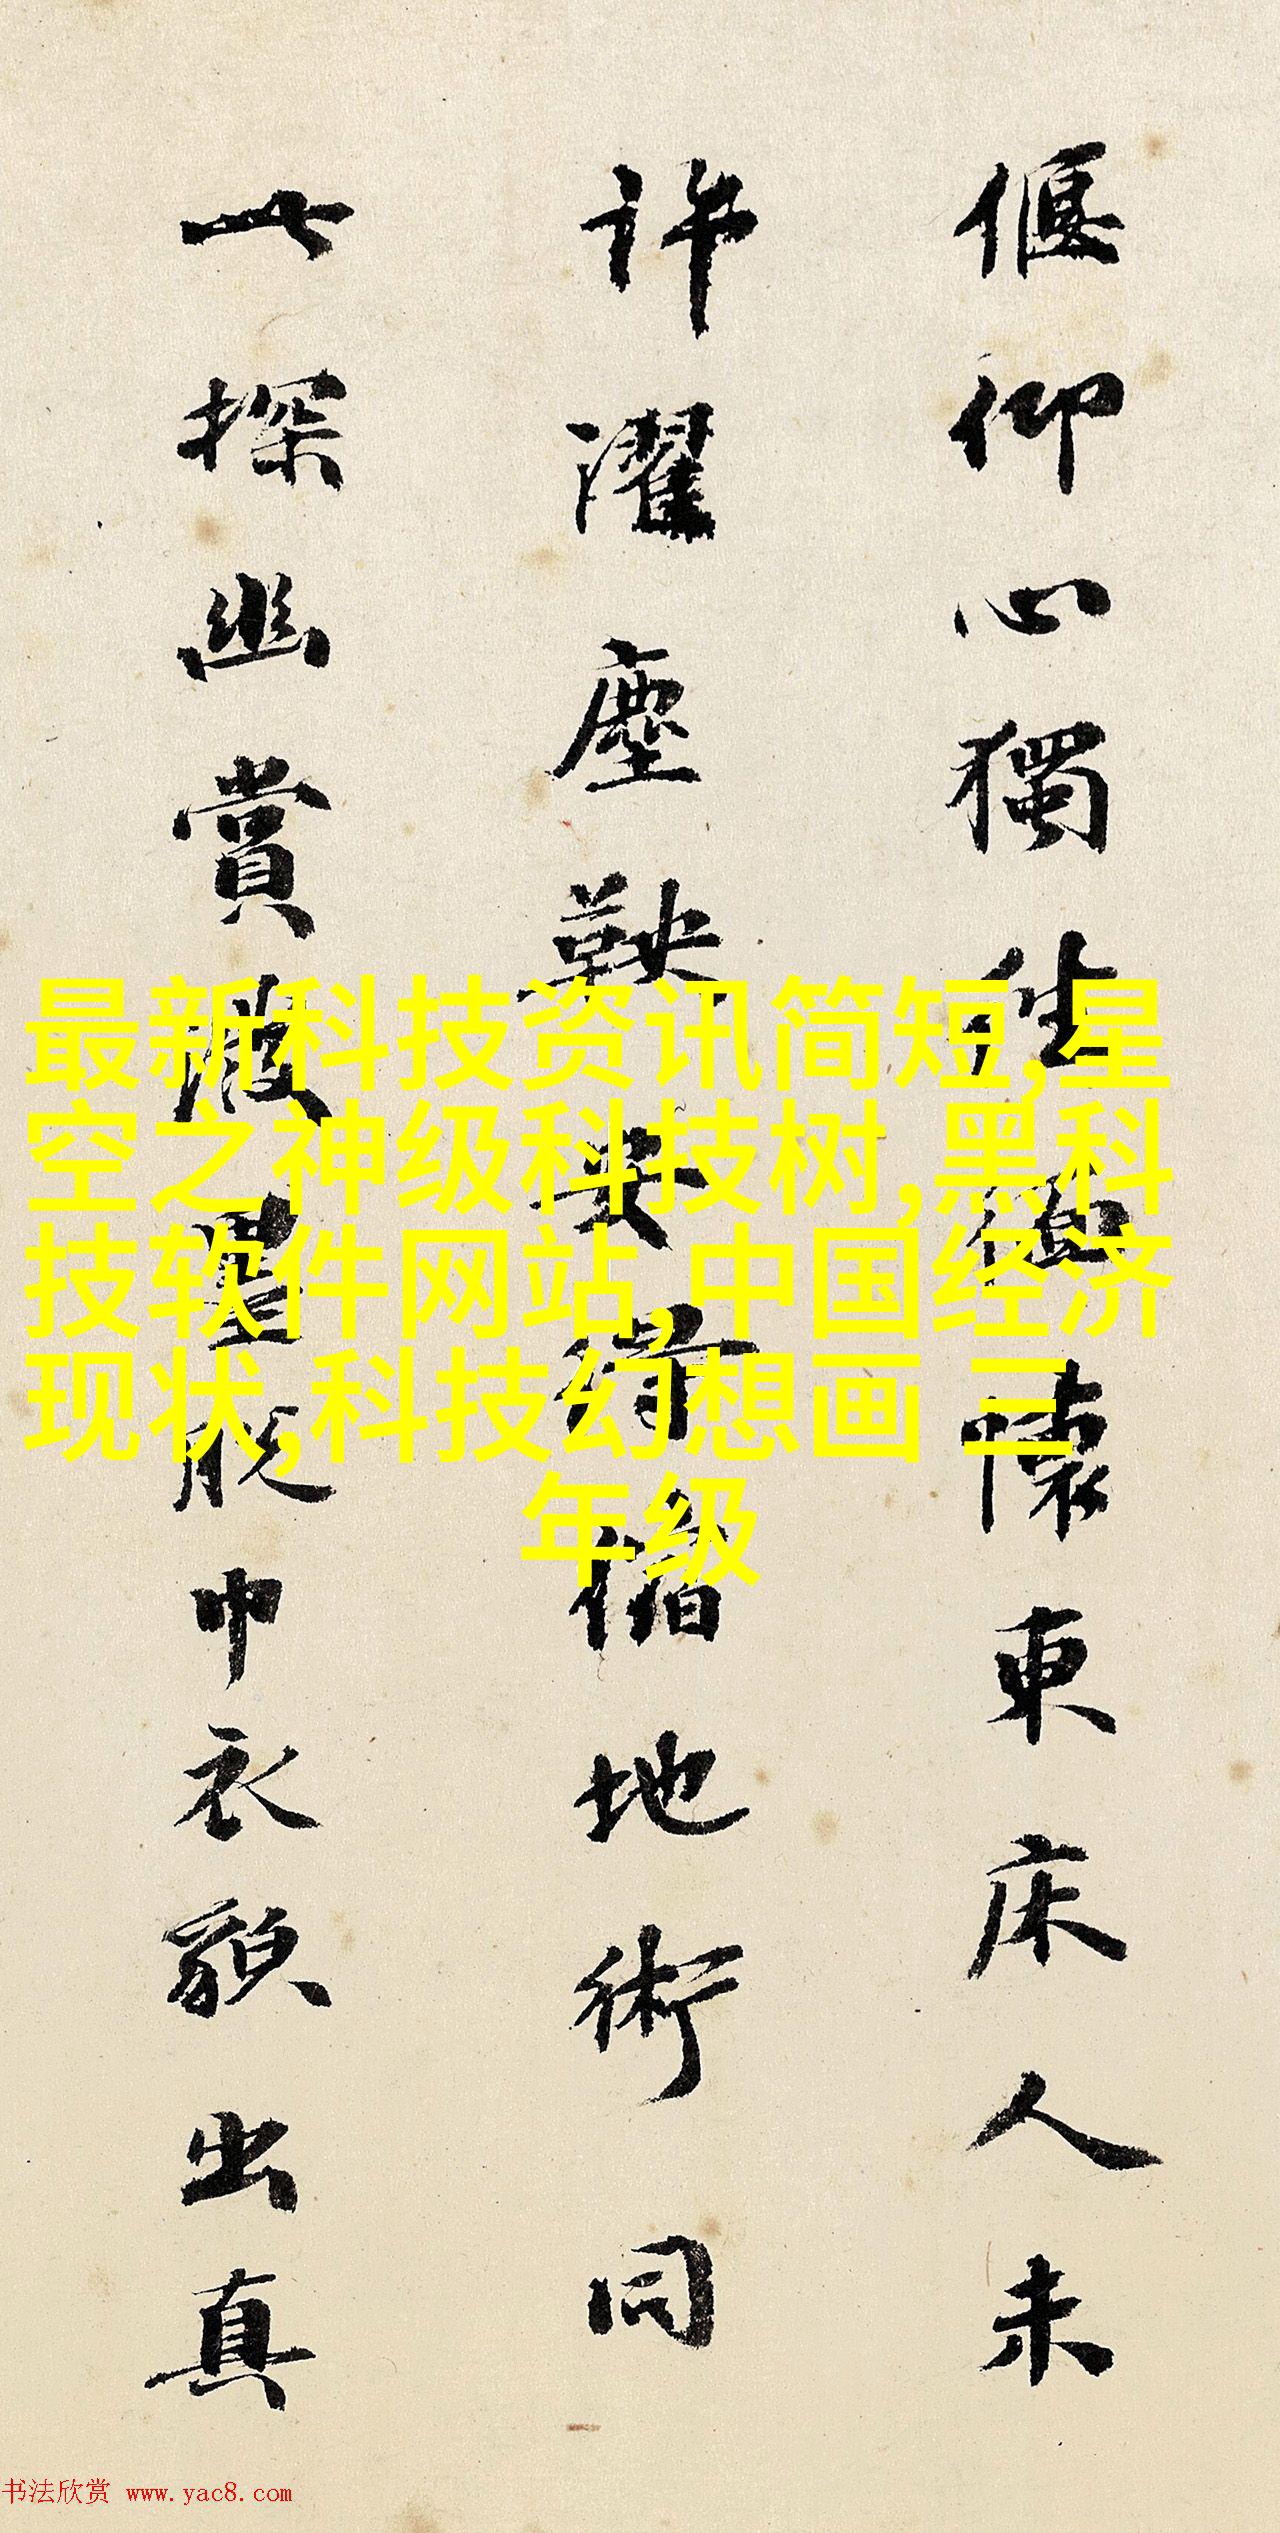 偃仰心獨往懷東床人未
許濯塵鞅安得地術同
此探幽賞脱巾衣貌出真
最新科技资讯简短,星
空之神级科技树,黑科
技软件网站,中国经济
现状,科技幻想画 三
年级
书法欣赏 www.yac8.com